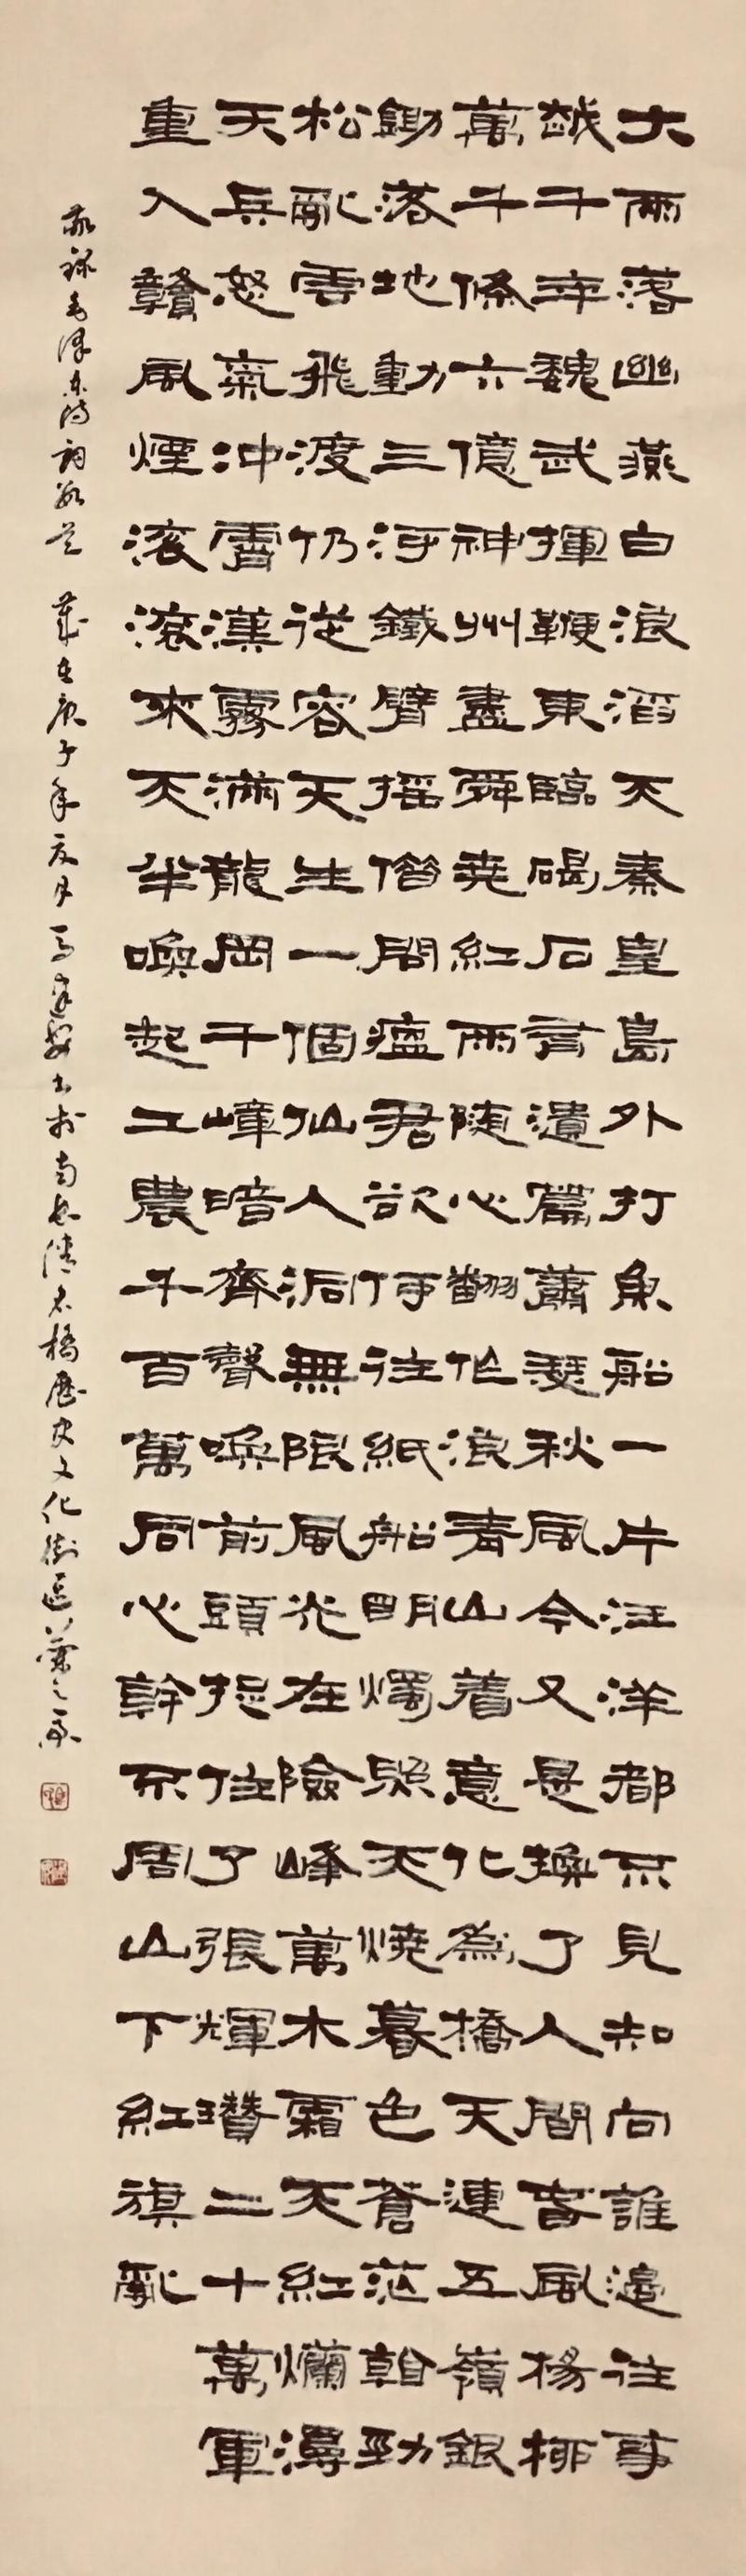 大雨落幽燕白浪滔天秦皇島外打魚船一片汪洋都不見知向誰邊往事
越千年魏武揮鞭東臨碣石有遺篇蕭瑟秋風今又是換了人間春風楊柳
萬千條六億神州盡舜堯紅雨随心翻作浪青山着意化為橋天連五嶺銀
鋤落地動三河鐵臂摇借問瘟君欲何往紙船明燭照天燒暮色蒼茫看勁
松亂雲飛渡仍從容天生一個仙人洞無限風光在險峰萬木霜天紅爛漫
天兵怒氣冲霄漢霧滿龍岡千嶂暗齊聲喚前頭捉住了張輝瓚二十萬軍
重入贛風煙滚滚來天半喚起工農千百萬同心幹不周山下紅旗亂
敬録毛澤東詩詞數首 歲在庚子年夏月馬書於南長清名橋歷史文化街區